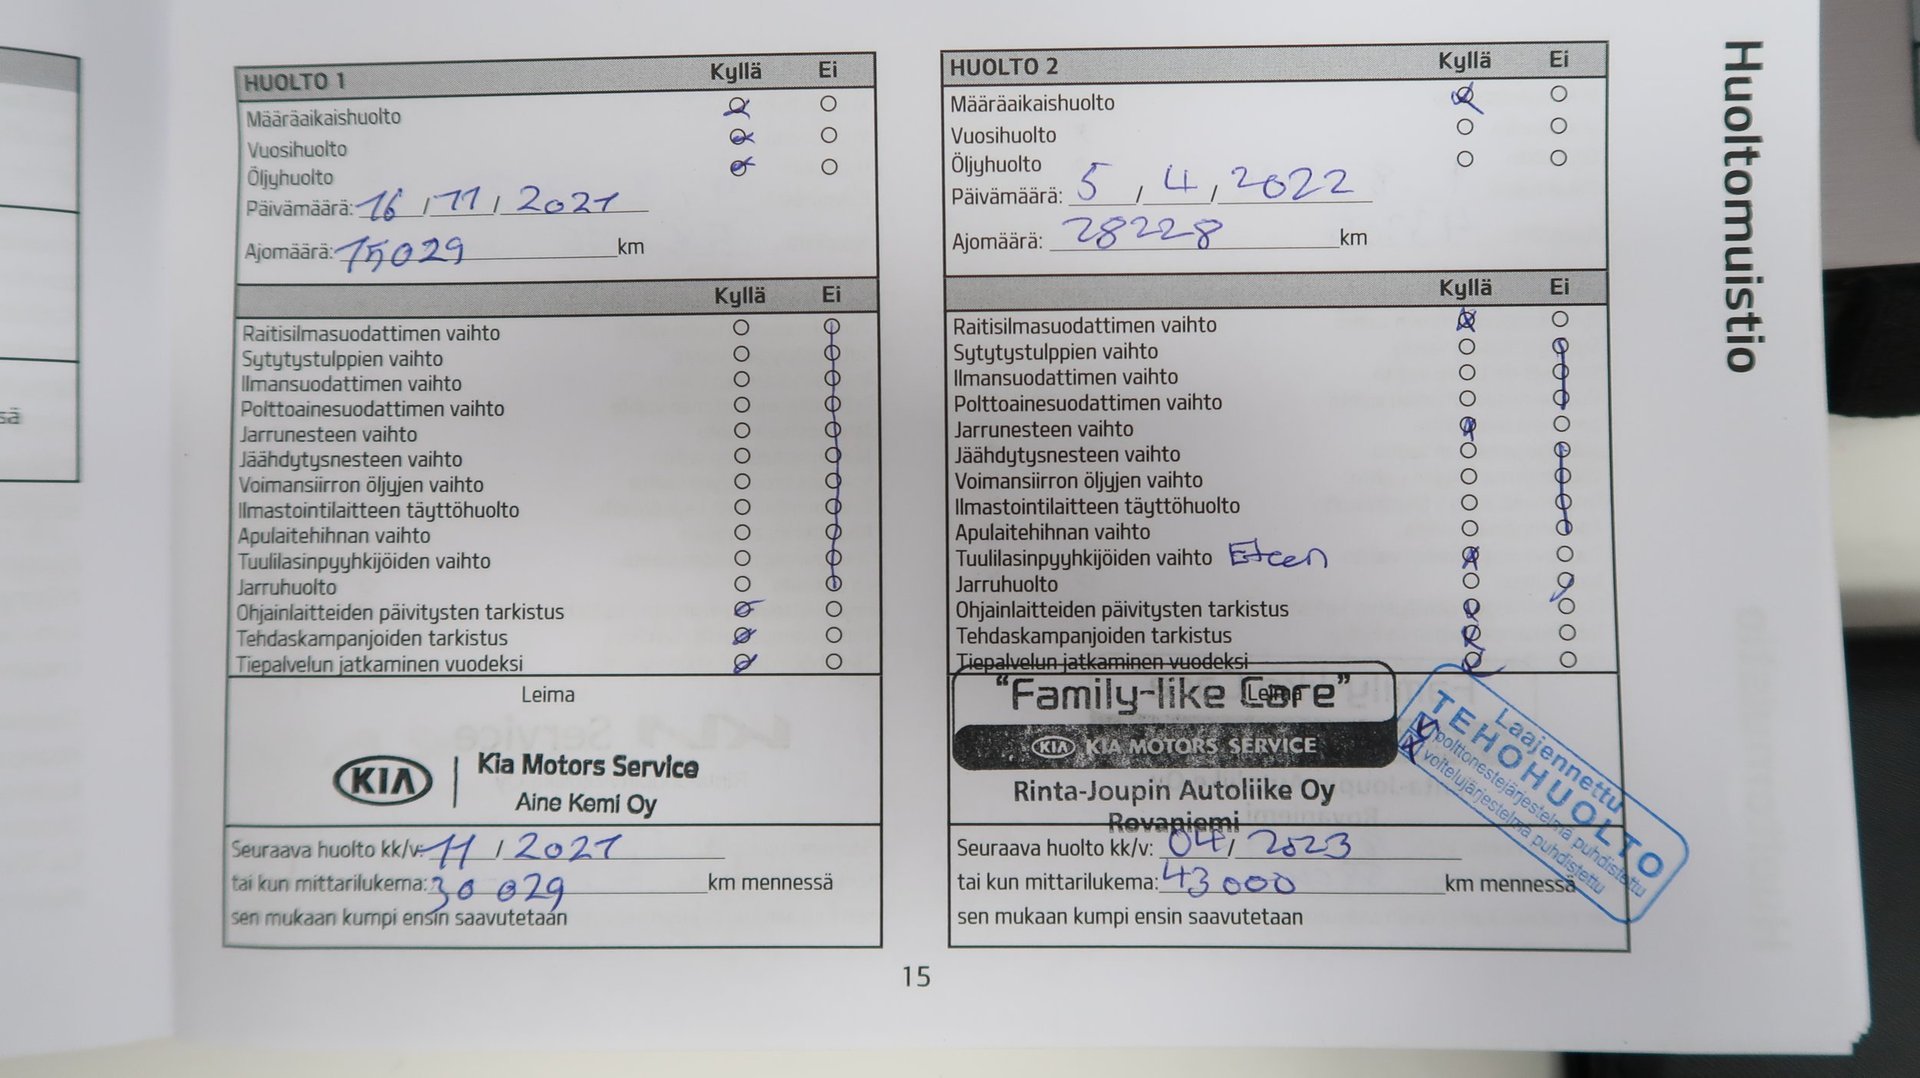 sä
HUOLTO 1 Kyllä Ei
Määräaikaishuolto
Vuosihuolto
Öljyhuolto
Päivämäärä: 16 / 11 / 2021
Ajomäärä: 15029 km
Kyllä Ei
Raitisilmasuodattimen vaihto
Sytytystulppien vaihto
Ilmansuodattimen vaihto
Polttoainesuodattimen vaihto
Jarrunesteen vaihto
Jäähdytysnesteen vaihto
Voimansiirron öljyjen vaihto
Ilmastointilaitteen täyttöhuolto
Apulaitehihnan vaihto
Tuulilasinpyyhkijöiden vaihto
Jarruhuolto
Ohjainlaitteiden päivitysten tarkistus
Tehdaskampanjoiden tarkistus
Tiepalvelun jatkaminen vuodeksi
Leima
KIA Kia Motors Service
Aine Kemi Oy
Seuraava huolto kk/v: 11 / 2021
tai kun mittarilukema: 30 029 km mennessä
sen mukaan kumpi ensin saavutetaan
HUOLTO 2 Kyllä Ei
Määräaikaishuolto
Vuosihuolto
Öljyhuolto
Päivämäärä: 5 / 4 / 2022
Ajomäärä: 28228 km
Kyllä Ei
Raitisilmasuodattimen vaihto
Sytytystulppien vaihto
Ilmansuodattimen vaihto
Polttoainesuodattimen vaihto
Jarrunesteen vaihto
Jäähdytysnesteen vaihto
Voimansiirron öljyjen vaihto
Ilmastointilaitteen täyttöhuolto
Apulaitehihnan vaihto
Tuulilasinpyyhkijöiden vaihto Eteen
Jarruhuolto
Ohjainlaitteiden päivitysten tarkistus
Tehdaskampanjoiden tarkistus
Tiepalvelun jatkaminen vuodeksi
Leima
"Family-like Care"
KIA KIA MOTORS SERVICE
Rinta-Joupin Autoliike Oy
Rovaniemi
Laajennettu
TEHOHUOLTO
polttonestejärjestelmä puhdistettu
voitelujärjestelmä puhdistettu
Seuraava huolto kk/v: 04 / 2023
tai kun mittarilukema: 43000 km mennessä
sen mukaan kumpi ensin saavutetaan
Huoltomuistio
15